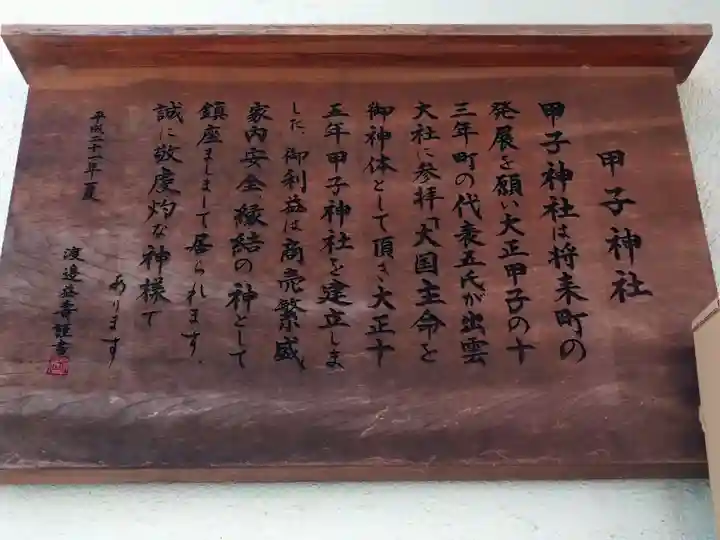 甲子神社
甲子神社は将来町の
発展を願い大正甲子の十
三年町の代表五氏が出雲
大社に参拝「大国主命を
御神体として頂き大正十
五年甲子神社を建立しま
した 御利益は商売繁盛、
家内安全、縁結の神として
鎮座ましまして居られます、
誠に敬虔灼な神様で
あります
平成二十一年夏
渡邉益壽謹書